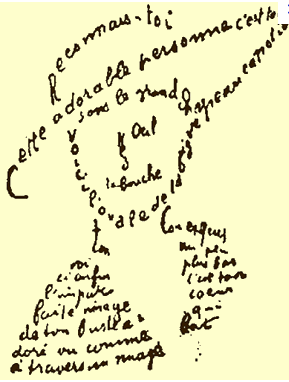 Reconnais-toi
Cette adorable personne c'est to
sous le grand chapeau canotie
Œil
Voici l'ovale de ta figure
la bouche
ton
Cou exquis
voi
ci enfin
l'impar
faite image
de ton buste a
doré vu comme
à travers un nuage
un peu
plus bas
c'est ton
coeur
qui
bat